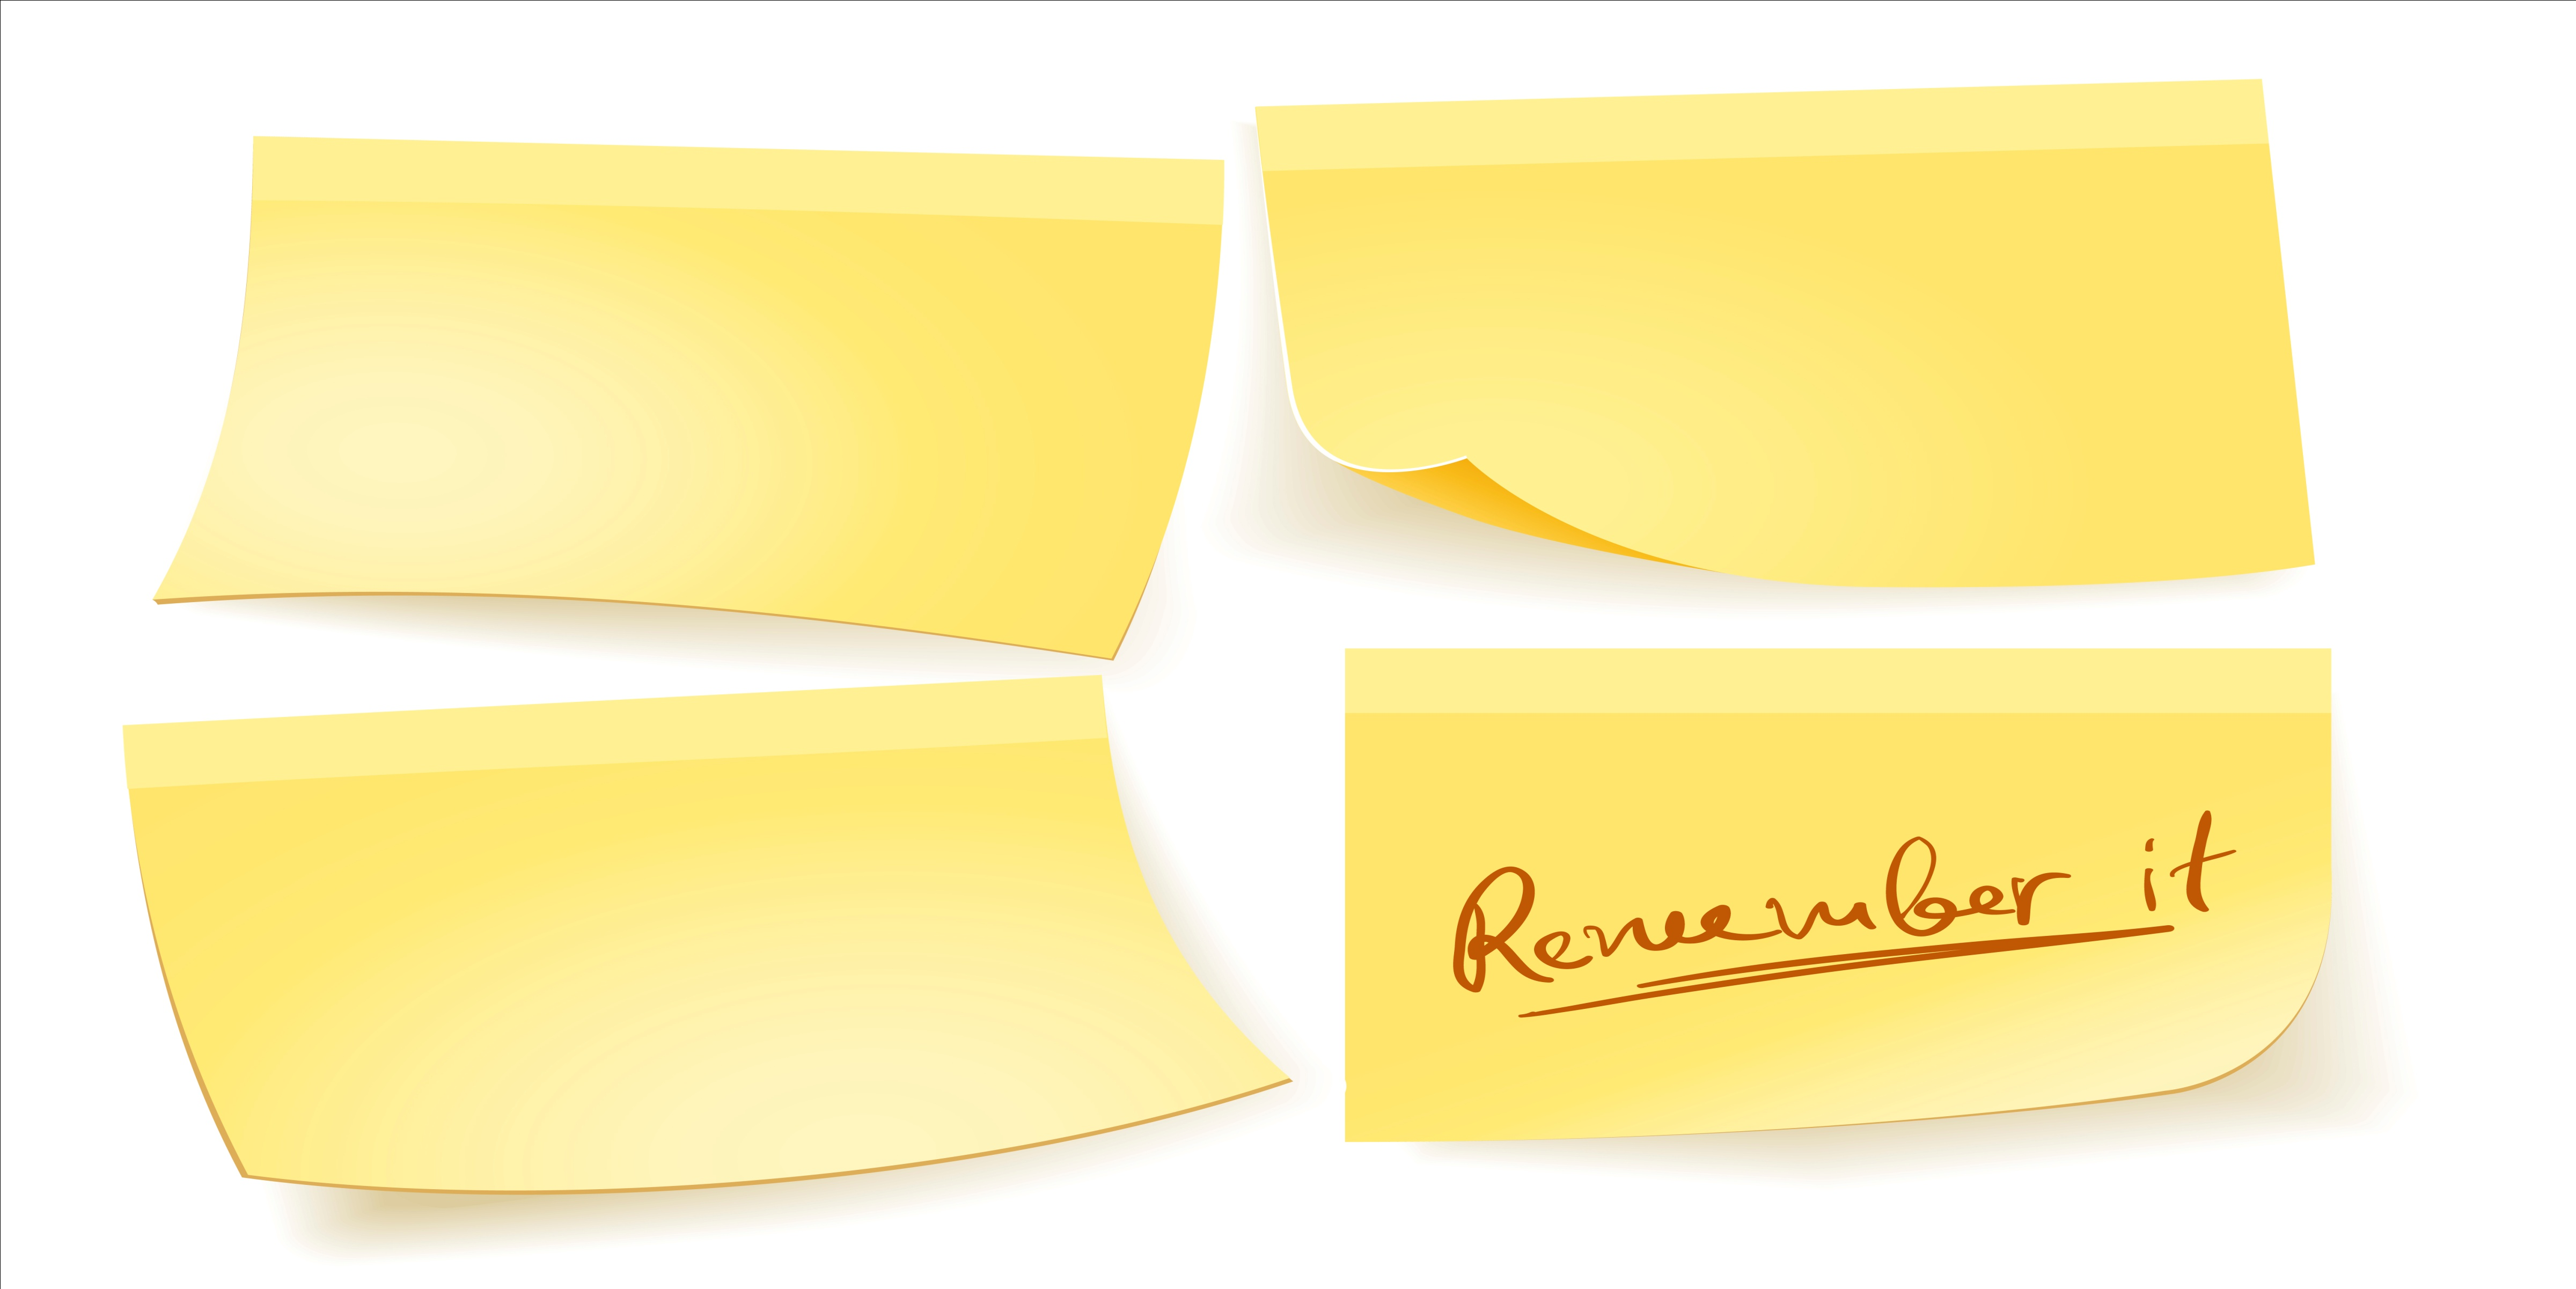 Remember it